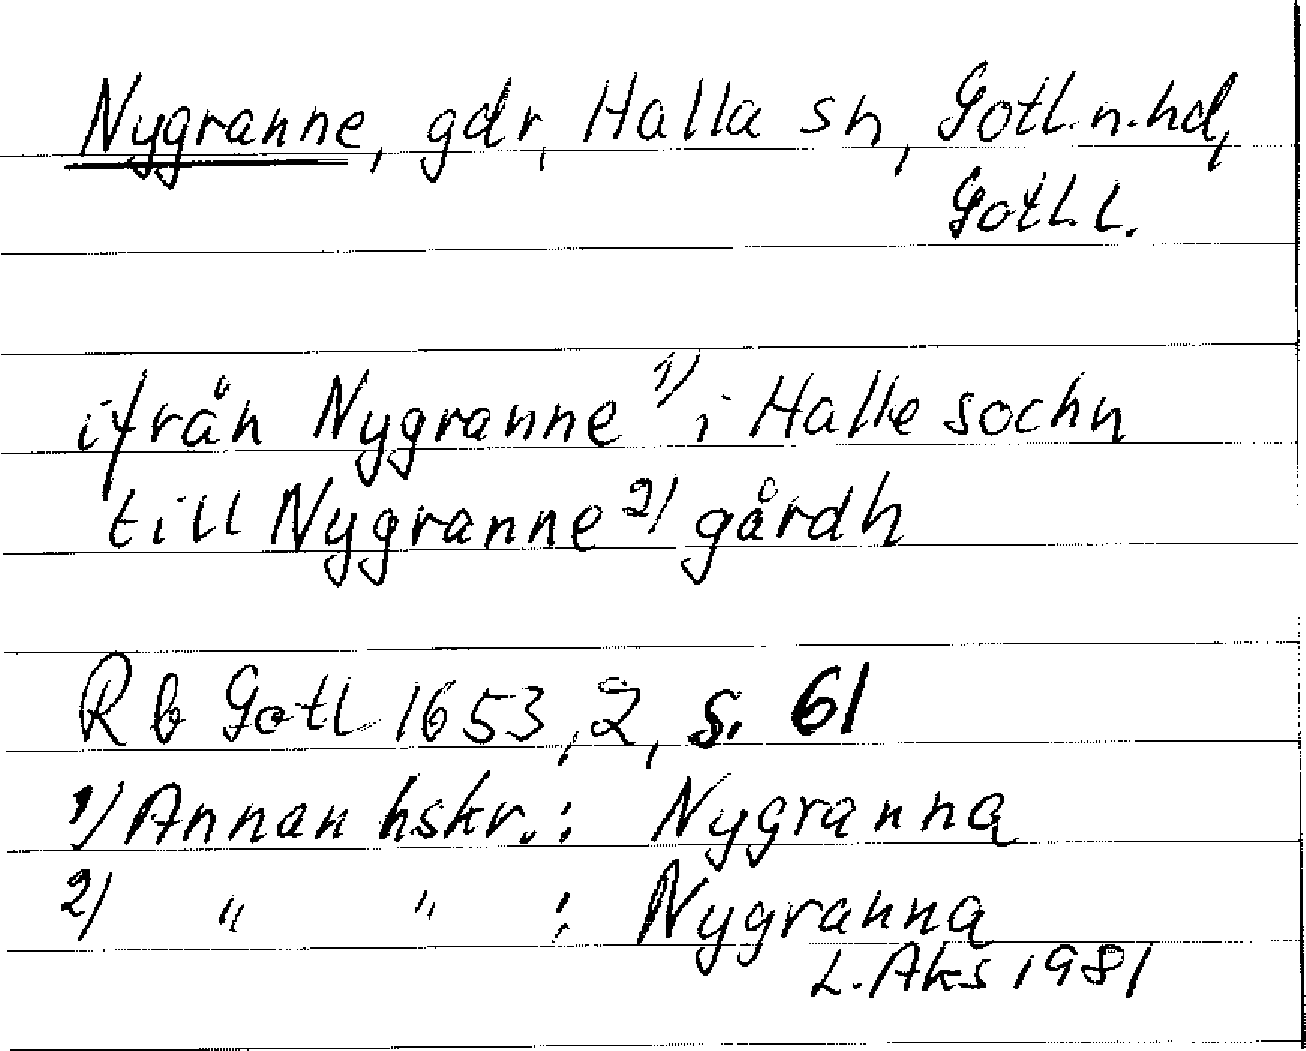 Nygranne, gdr, Halla sn, Gotl.n.hd,
Gotl.l.
ifrån Nygranne 1) i Halle sochn
till Nygranne 2) gårdh
R b Gotl 1653, 2, s. 61
1) Annan hskr.: Nygranna
2) " " : Nygranna
L. Aks 1981